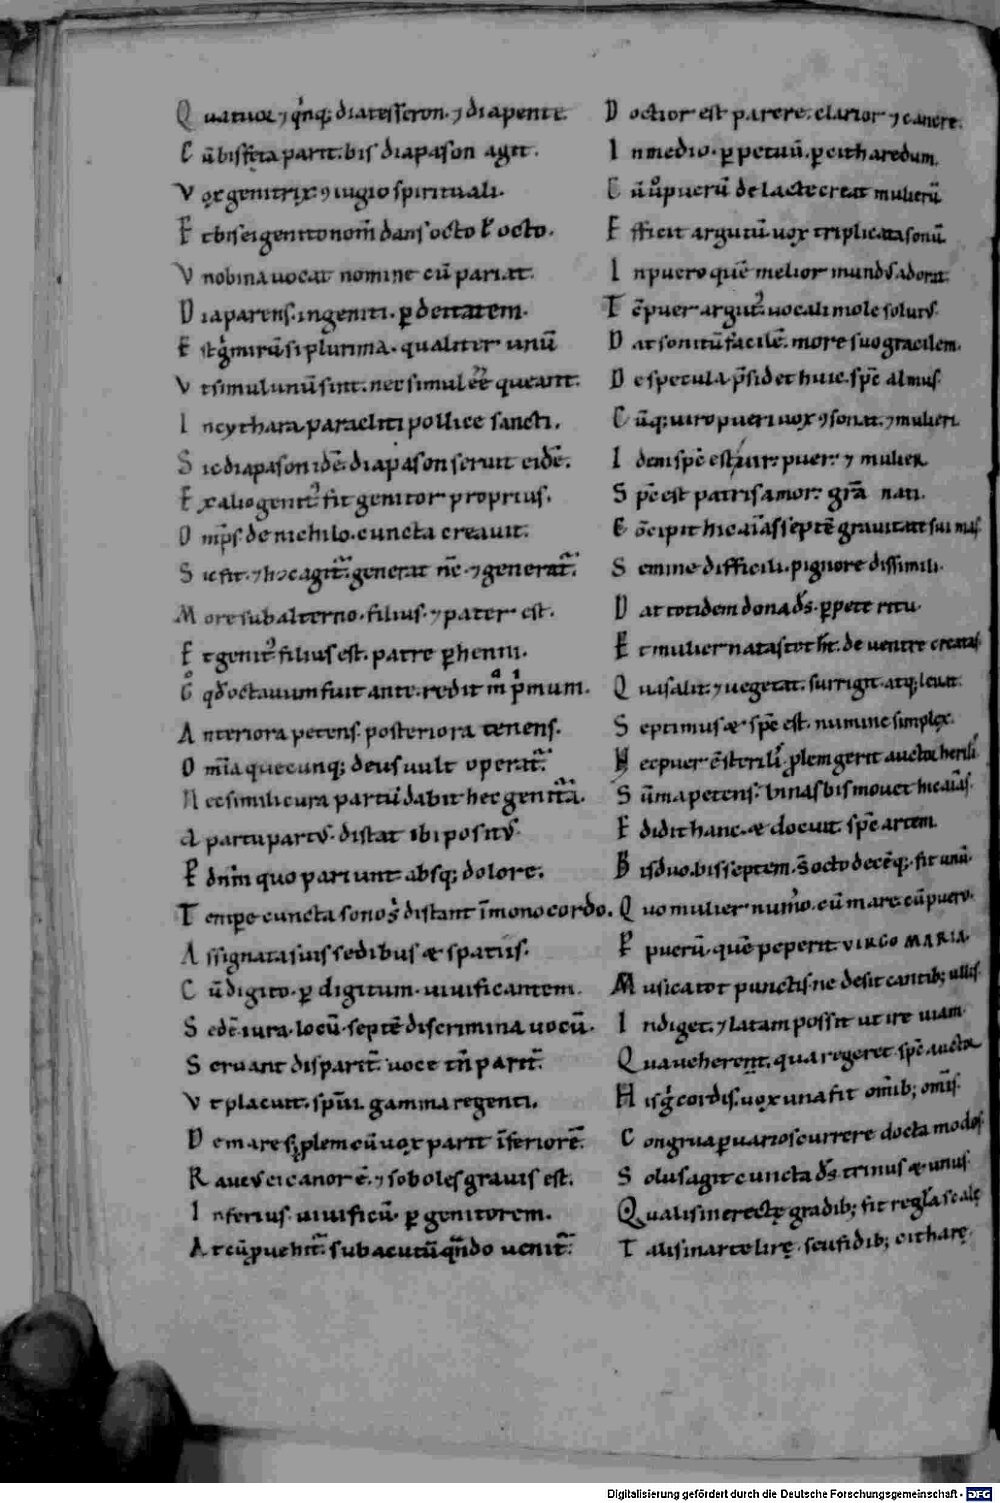 Quatuor ⁊ q̇nq; diatesseron. ⁊ diapente.
Cū bis parit. bis diapason agit.
Vox genitrix. ꝯiugio spirituali.
Et bis ei genito nom̄ dans octo ł octo.
Uno bina uocat nomine cū pariat.
Diaparens. ingeniti. ꝑ deitatem.
Est g̊ mirū si plurima. qualiter unū
Ut simul unū sint. nec simul ēē queant.
In cythara paracliti pollice sancti.
Sic diapason idē. diapason seruit eidē.
Ex alio genit᷒ fit genitor proprius.
Om̄ps de nichilo. cuncta creauit.
Sic fit. ⁊ hoc agit᷑. generat nc̄. ⁊ generat᷑.
More subalterno. filius. ⁊ pater est.
Et genit᷒ filius est. patre ꝑhenni.
G qđ octauum fuit ante. redit m̊ p̍mum.
Anteriora petens. posteriora tenens.
Om̄ia quecunq; deus uult operat᷑.
Nec simili cura partū dabit hec genit᷑a.
A partu part᷒. distat ibi posit᷒.
P dn̄m quo pariunt absq; dolore.
Tempe cuncta sonos distant ī monocordo.
Assignata suis sedibus & spatiis.
Cū digito. ꝑ digitum. uiuificantem.
Sedē iura. locū. septē discrimina uocū.
Seruant disparit᷑. uoce tn̄ parit᷑.
Ut placuit. spūi. gamma regenti.
De mare si ꝓlem cū uox parit īferiorē.
Rauc᷒ ei canor ē. ⁊ soboles grauis est.
Inferius uiuificū. ꝑ genitorem.
At cū ꝓuehit᷑. sub acutū qn̄do uenit᷑.
Doctior est parere. clarior ⁊ canere.
In medio. ꝑpetuū. ꝑ citharedum.
Cū u̇o puerū de lacte creat mulierū
Efficit argutū uox triplicata sonū.
In puero quē melior mund᷒ adorat.
Tc̄ puer argut᷒. uocali mole solut᷒.
Dat sonitū facilē. more suo gracilem.
De specula p̄sidet huic. spc̄ almus.
Cūq; uiro pueri uox ꝯsonat. ⁊ mulieri.
Idem spc̄ est uir. puer. ⁊ mulier.
Spc̄ est patris amor. gr̄a nati.
Cōcipit hic aīas septē grauitate sui mas
Semine difficili. pignore dissimili.
Dat totidem dona ds̄. ꝑpete ritu.
Et mulier natas tot ht̄. de uentre creatas
Quas alit. ⁊ uegetat. surrigit. atq; leuat.
Septimus & spc̄ est. numine simplex.
Nec puer ē sterilis. ꝓlem gerit auctor herilis
Sūma petens. binas bis mouet hic aīas.
Edidit hanc. & docuit. spc̄ artem.
Bis duo. bis septem. s; octo decēq; fit unū.
Quo mulier num̊o. cū mare cū puero.
P puerū. quē peperit VIRGO MARIA.
Musica tot punctis. ne desit cantib; ullis
Indiget. ⁊ latam possit ut ire uiam.
Qua ueherent. qua regeret spc̄ auctor
His g̊ cordis. uox una fit om̄ib; om̄is.
Congrua ꝑ uarios currere docta modos
Solus agit cuncta ds̄ trinus & unus.
Qualis in erectę gradib; fit regla scalę
Talis in arte lirę. seu fidib; citharę.
Digitalisierung gefördert durch die Deutsche Forschungsgemeinschaft - DFG